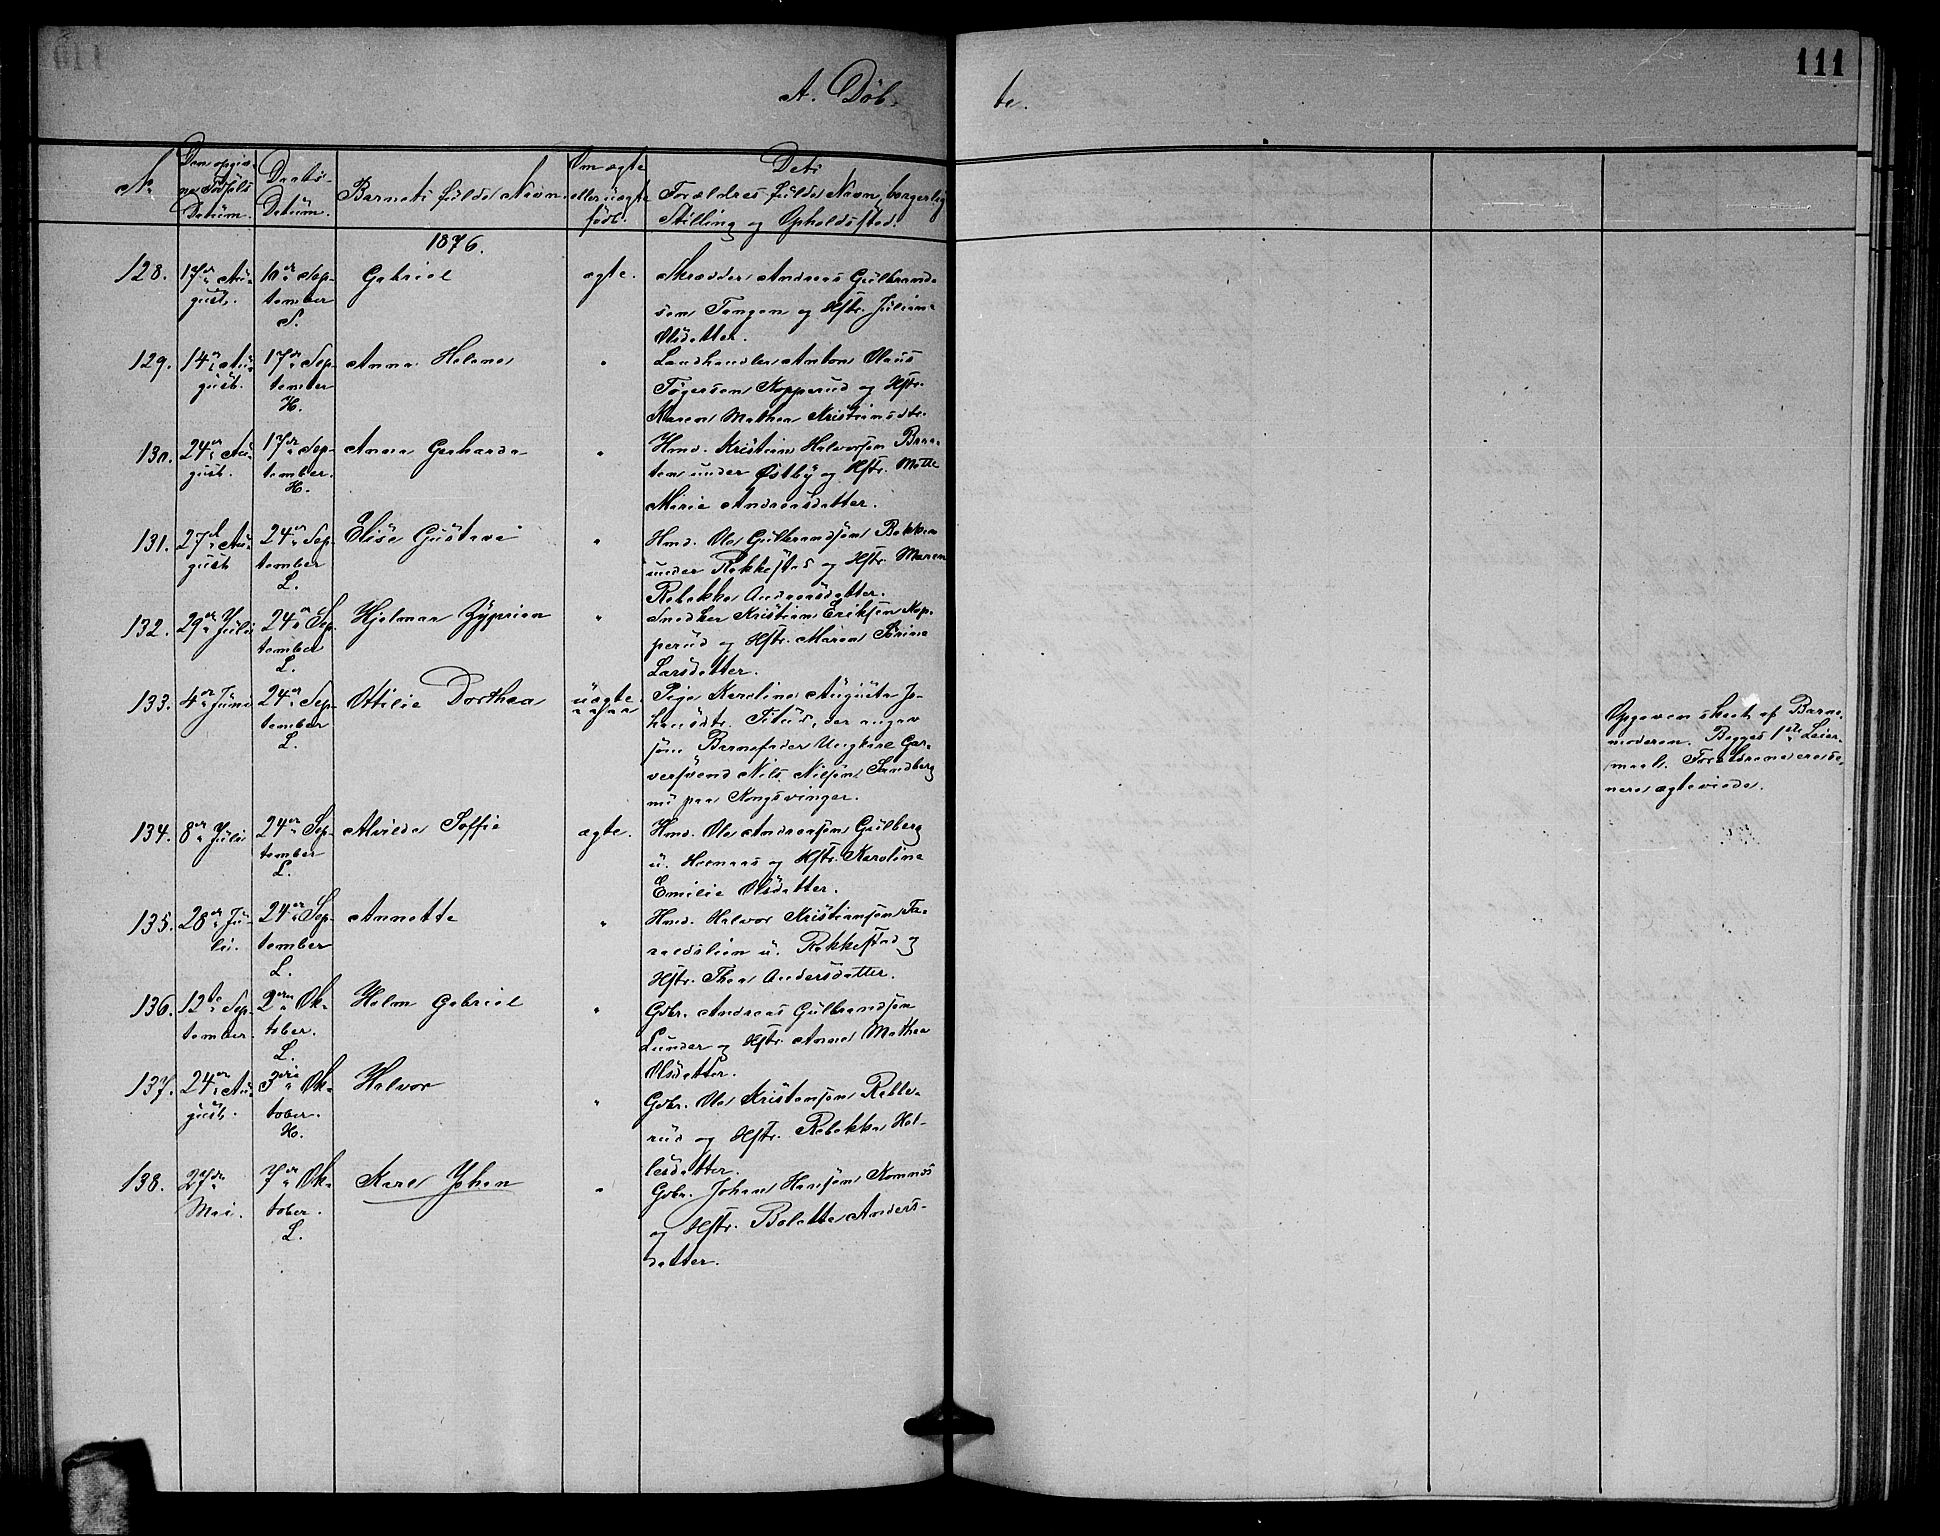 111
A. Döb-
te.
No
Den opgiv-
ne Födsels
Datum.
Daabs-
Datum.
Barnets fulde Navn
Om ægte
eller uægte
födt.
Dets
Forældres fulde Navn, borgerlig
Stilling og Opholdssted.
1876.
128.
17de Au-
gust.
10de Sep-
tember
S.
Gabriel
ægte.
Skrædder Andreas Gulbrand-
sen Tangen og Hstr. Juliane
Olsdatter.
129.
14de Au-
gust.
17de Sep-
tember
H.
Anna Helene
"
Landhandler Anton Olaus
Tögersen Kopperud og Hstr.
Karen Mathea Kristiansdtr.
130.
24de Au-
gust.
17de Sep-
tember.
H.
Anna Gerharda
"
Hmd. Kristian Halvorsen Braa-
ten under Østby og Hstr. Mette
Marie Andreasdatter.
131.
27de Au-
gust
24de Sep-
tember
L.
Elise Gustava
"
Hmd. Ole Gulbrandsen Bakken
under Rakkestad og Hstr. Maren
Rebekka Andreasdatter.
132.
29de Juli
24de Sep-
tember
L.
Hjalmar Zyprian
"
Snedker Kristian Eriksen Kop-
perud og Hstr. Maren Sörine
Larsdatter.
133.
4de Juni
24de Sep-
tember
L.
Ottilie Dorthea
uægte.
Pige Karoline Augusta Jo-
hansdtr. der angav
som Barnefader Ungkarl Gar-
versvend Nils Nilsen Sandberg
nu paa Kongsvinger.
Opgaven skeet af Barne-
moderen. Begges 1ste Leier-
maal. Forældrene ere se-
nere ægteviede.
134.
8de Juli
24de Sep-
tember
L.
Alvilde Soffie
ægte.
Hmd. Ole Andreasen Gulberg
u. Hemnæs og Hstr. Karoline
Emilie Olsdatter.
135.
28de Ju-
li.
24de Sep-
tember
L.
Annette
"
Hmd. Halvor Kristiansen Ta-
raldslien u. Rakkestad og
Hstr. Thea Andersdatter.
136.
12te Sep-
tember.
2den Ok-
tober.
L.
Holm Gabriel
"
Gbr. Andreas Gulbrandsen
Lunder og Hstr. Anne Mathea
Olsdatter.
137.
24de Au-
gust.
3die Ok-
tober.
H.
Halvor
"
Gbr. Ole Kristensen
rud og Hstr. Rebekka Hal-
lesdatter.
138.
27de
Mai.
7de Ok-
tober.
L.
Karl Johan
"
Gbr. Johan Hansen Komnæs
og Hstr. Bolette Anders-
datter.